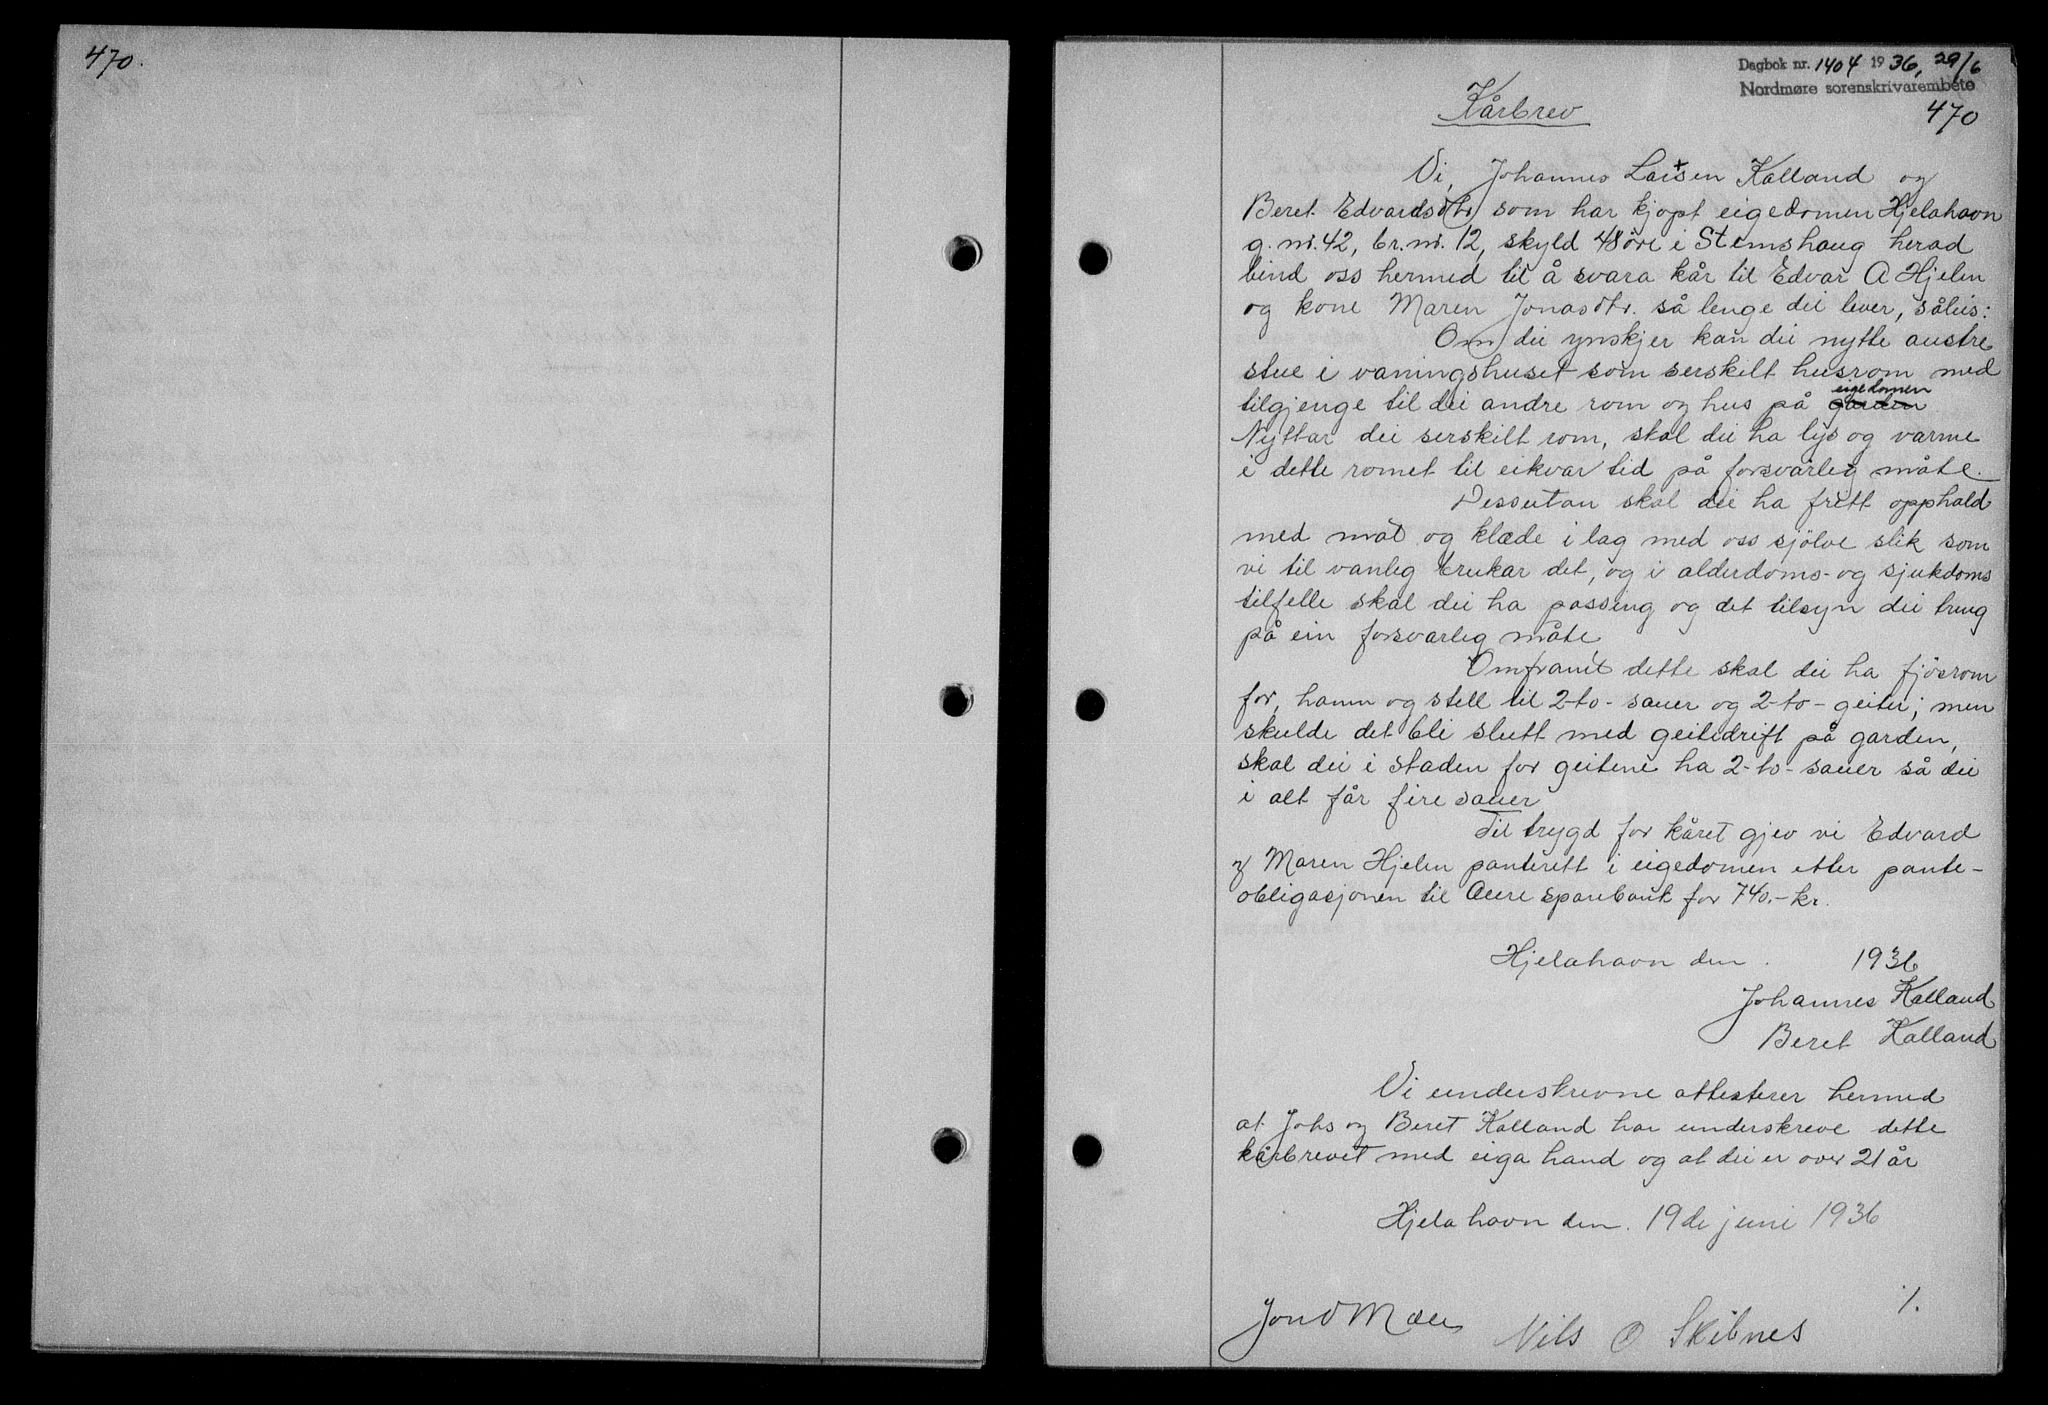 470.
Dagbok nr. 1404 1936, 29/6
Nordmøre sorenskrivarembete
470
Kårbrev
Vi, Johannes Larsen Kalland og
Beret Edvardsdtr som har kjøpt eigedomen Hjelahavn
g.nr. 42, br.nr. 12, skyld 48 öre i Stemshaug herad
bind oss hermed til å svara kår til Edvar A Hjelen
og kone Maren Jonasdtr. så lenge dei lever, såleis:
Om dei ynskjer kan dei nytte austre
stue i vaningshuset som serskilt husrom med
tilgjenge til dei andre rom og hus på garden eigedomen
Nyttar dei serskilt rom, skal dei ha lys og varme
i dette romet til eikvar tid på forsvarleg måte.
Dessutan skal dei ha fritt opphald
med mat og klæde i lag med oss sjölve slik som
vi til vanleg brukar det, og i alderdoms- og sjukdoms
tilfelle skal dei ha passing og det tilsyn dei treng
på ein forsvarleg måte
Omframt dette skal dei ha fjösrom
for, hamn og stell til 2-to- sauer og 2-to- geiter; men
skulde det bli slutt med geitedrift på garden,
skal dei i staden for geitene ha 2-to- sauer så dei
i alt får fire sauer
Til trygd for kåret gjev vi Edvard
og Maren Hjelen panterett i eigedomen etter pante-
obligasjonen til Aure sparebank for 740.- kr.
Hjelahavn den . 1936
Johannes Kalland
Beret Kalland
Vi underskrevne attesterer hermed
at Johs og Beret Kalland har underskreve dette
kårbrevet med eiga hand og at dei er over 21 år
Hjelahavn den. 19de juni 1936
Jon O
Nils O Skibnes
/.